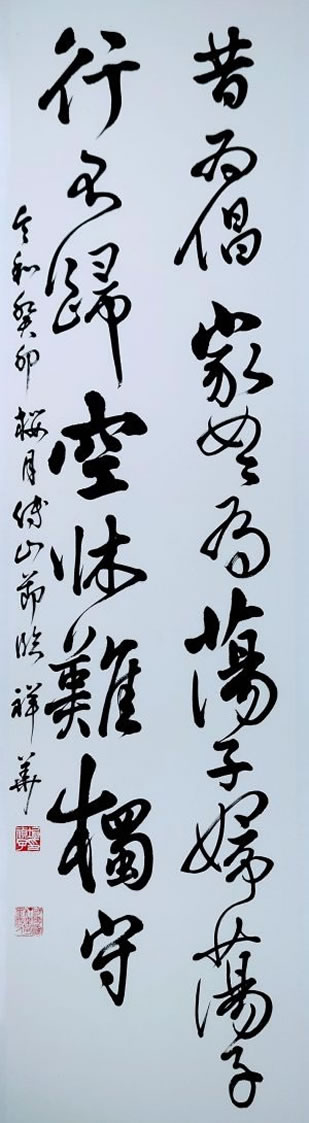 昔為倡家女今為蕩子婦蕩子
行不歸空牀難獨守
令和癸卯桜月傅山節臨祥華